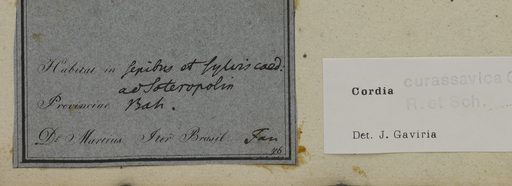 Habitat in sepibus et sylvis caed:
ad Soteropolin
Provinciae Bah.
Dr Martius Iter Brasil. Jan
Cordia curassavica
R. et Sch.
Det. J. Gaviria